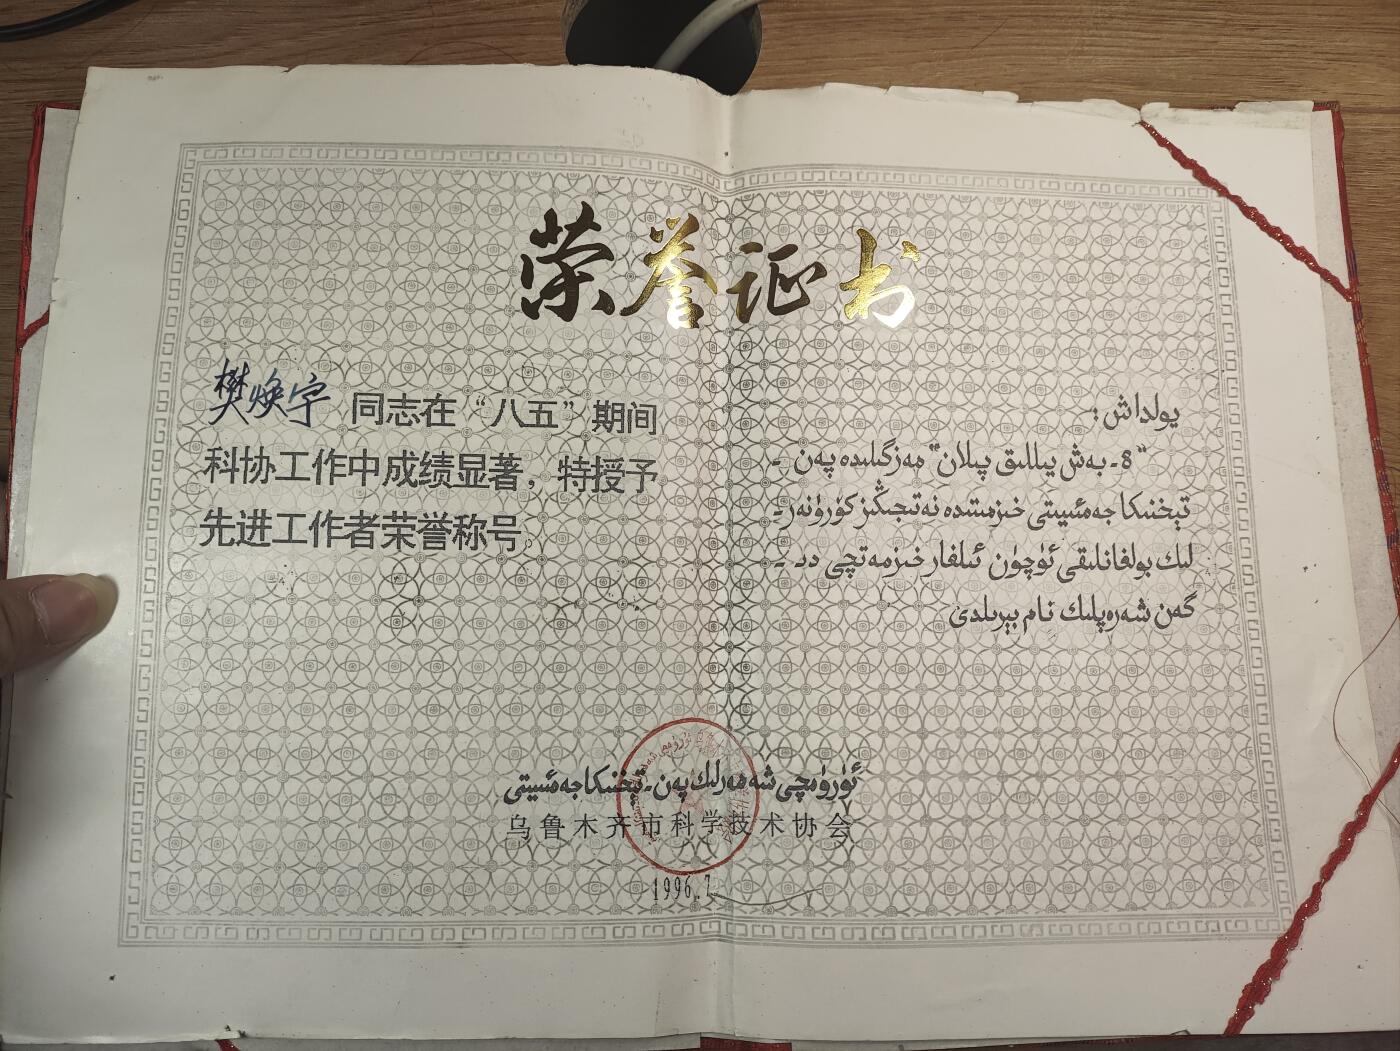 荣誉证书
樊焕宇 同志在“八五”期间
科协工作中成绩显著，特授予
先进工作者荣誉称号。
يولداش:
"8-بەش يىللىق پىلان" مەزگىلىدە پەن-
تېخنىكا جەمئىيىتى خىزمىتىدە نەتىجىڭىز كۆرۈنەر-
لىك بولغانلىقى ئۈچۈن ئىلغار خىزمەتچى دې-
گەن شەرەپلىك نام بېرىلدى
ئۈرۈمچى شەھەرلىك پەن-تېخنىكا جەمئىيىتى
乌鲁木齐市科学技术协会
1996.7